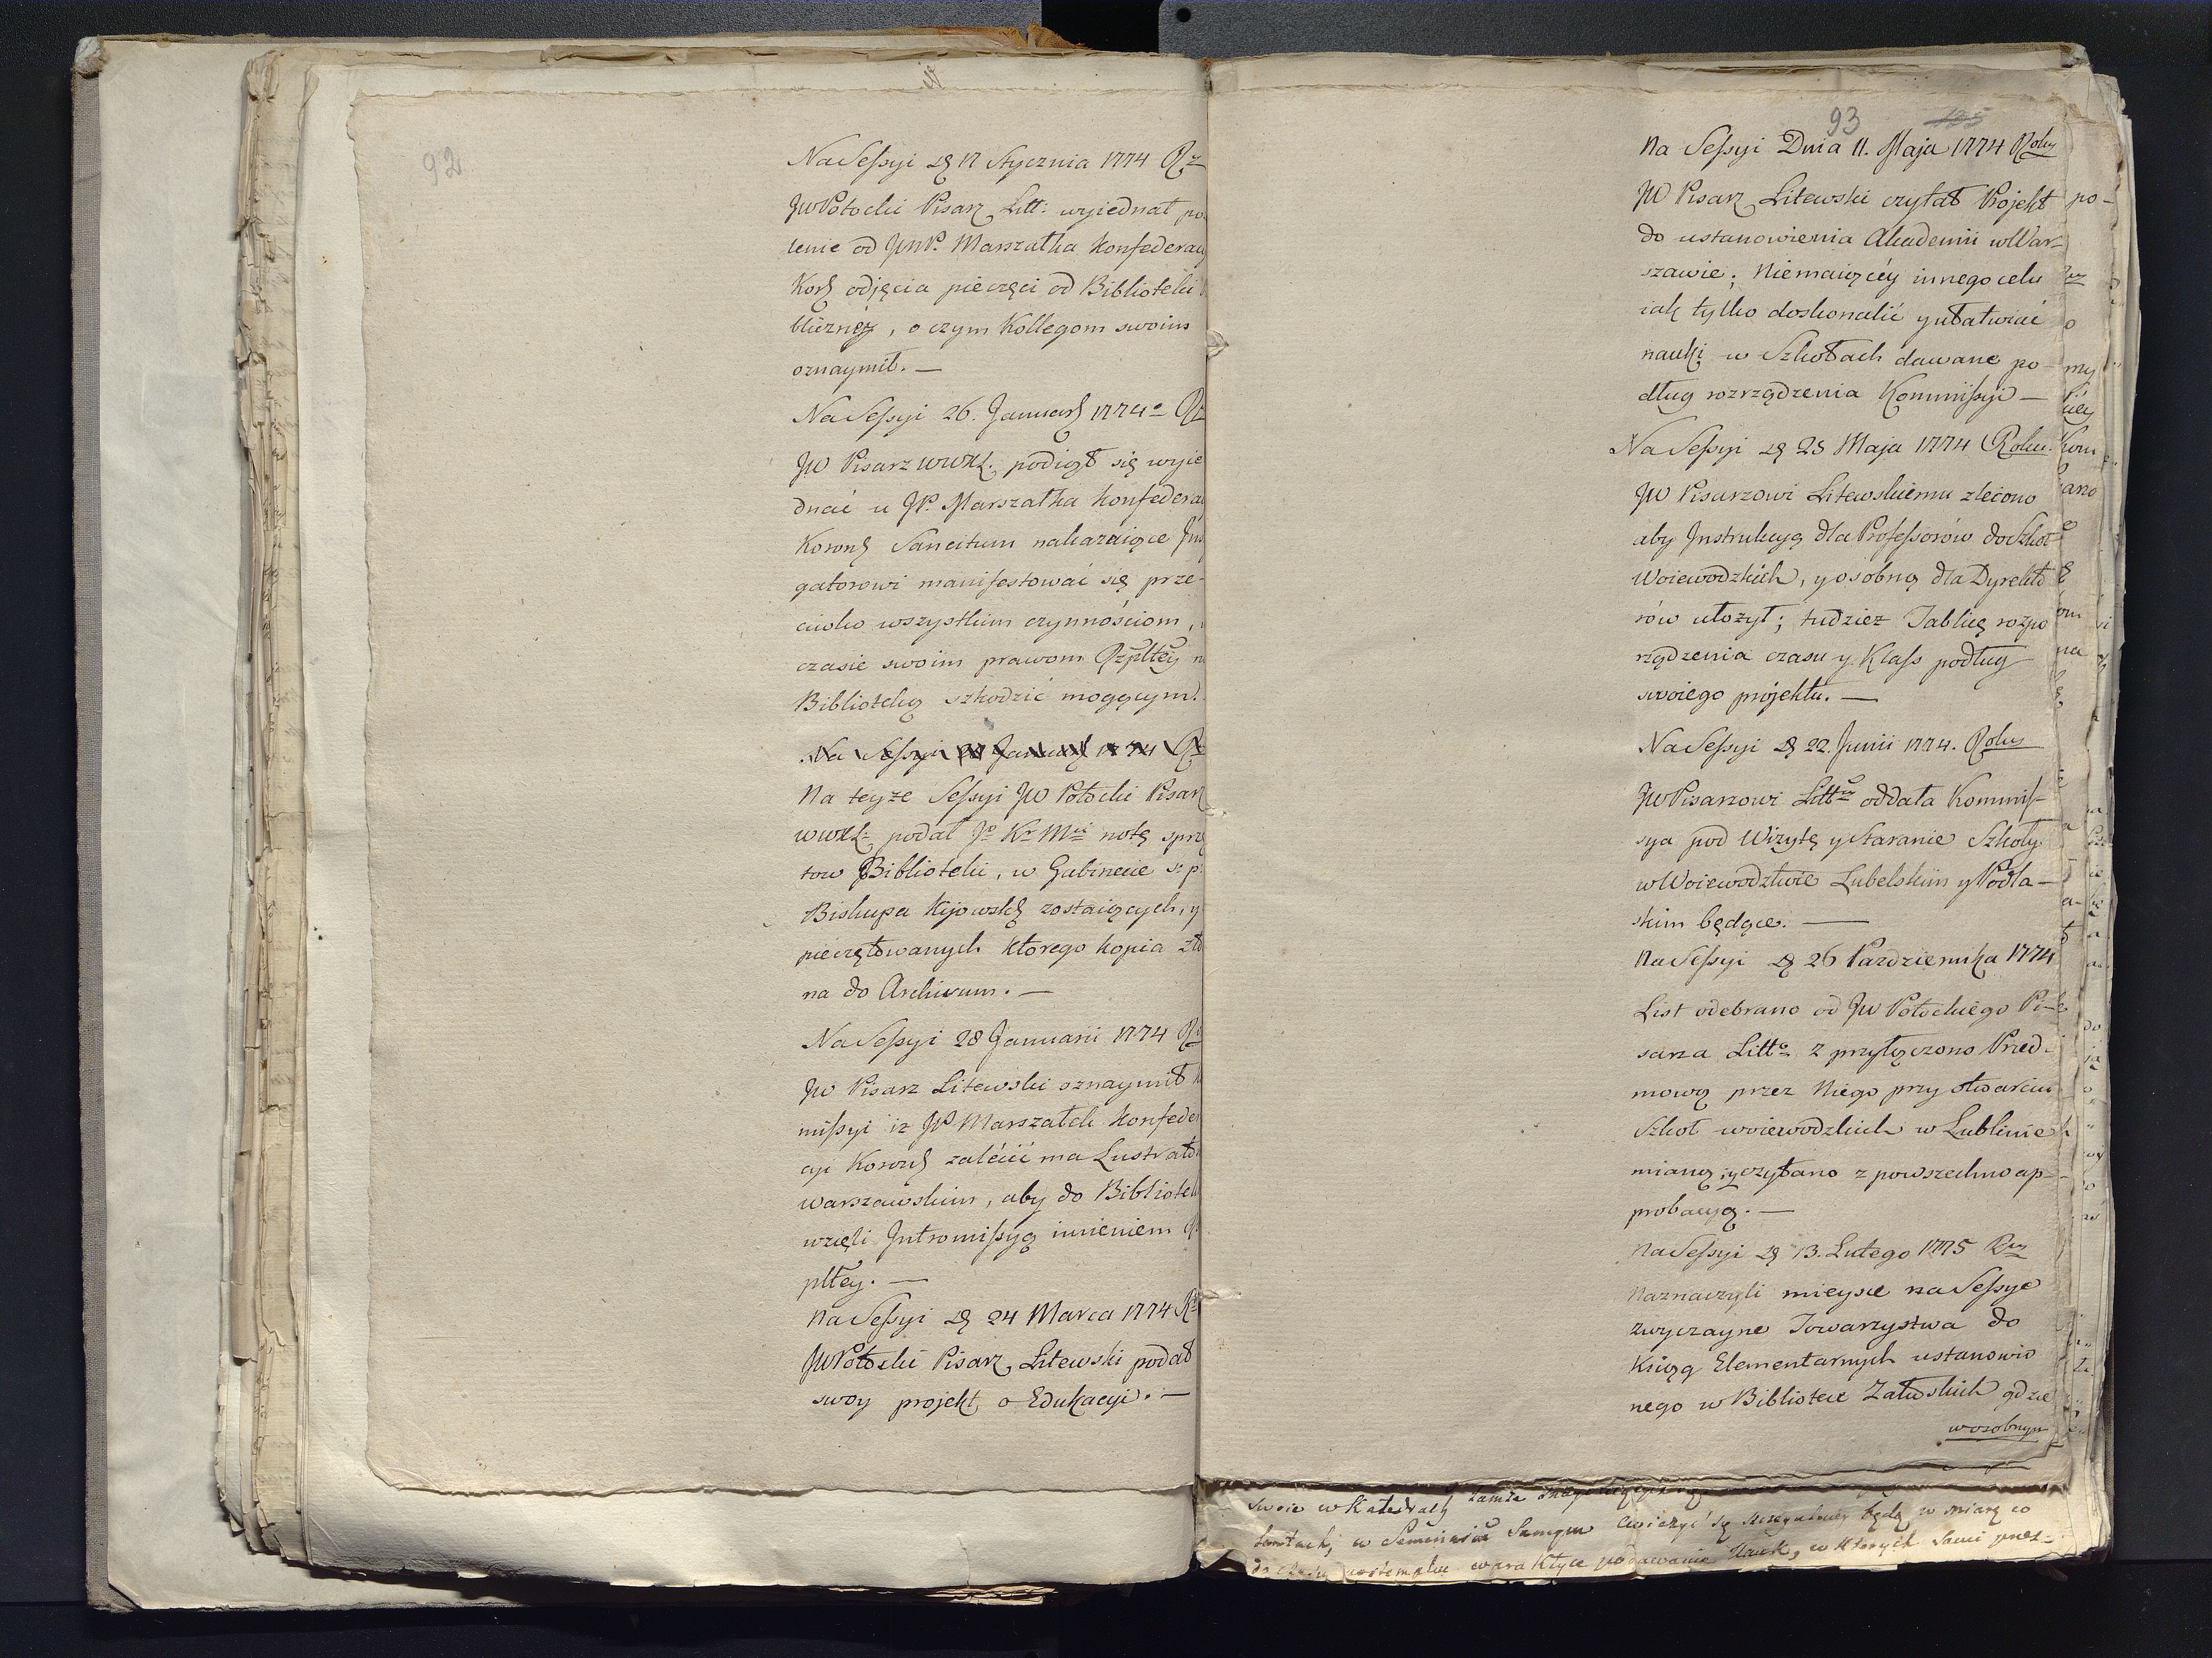 92
Na Sessyi dę 17 Stycznia 1774 Rz
JW Potocki Pisarz Litt: wyiednał po
lenie od JmP. Marszałka Konfederacy
Kory odjęcia pieczęci od Biblioteki
bliczney, o czym Kollegom swoim
oznaymił. —
Na Sessyi 26. January 1774o Rz
JW Pisarz WWXL. podiął się wyie
dnać u JP. Marszałka Konfedera
Korony Sancitum nakazuiące Ins
gatorowi manifestować się prze-
ciwko wszystkim czynnościom,
czasie swoim prawom Rzpltey
Bibliotekę szkodzić mogącym.
Na Sessyi January 1774 Rz
Na teyże Sessyi JW Potocki Pisarz
WWXL podał Jo Kr Mci notę sprzę
tow Biblioteki, w Gabinecie s: p:
Biskupa Kijowsky zostaiących, y
pieczętowanych którego kopia zło
na do Archivum. —
Na Sessyi 28 Januarii 1774 Rz
JW Pisarz Litewski oznaymił
missyi iż JP Marszałek Konfede
cyi Korony zalécić ma Lustrato
warszawskim, aby do Bibliotek
wzięli Intromissyą imieniem
pltey. —
Na Sessyi dę 24 Marca 1774 Rz
JW Potocki Pisarz Litewski podał
swoy projekt o Edukacyi. —
93
Na Sessyi Dnia 11. Maja 1774 Roku
JW Pisarz Litewski czytał Projekt
do ustanowienia Akademii w War-
szawie; Niemaiącéy innego celu
iak tylko doskonalić y ułatwiać
nauki w Szkołach dawane po-
dług rozrządzenia Kommissyi —
Na Sessyi dę 25 Maja 1774 Roku
JW Pisarzowi Litewskiemu zlécono
aby Instrukcyą dla Professorów do Szkoł
Woiewodzkich, y osobną dla Dyrekto
rów ułożył; tudzież Tablicę rozpo
rządzenia czasu y Klass podług
swoiego projektu. —
Na Sessyi dę 22. Junii 1774. Roku
JW Pisarzowi Litt oddała Kommis-
sya pod Wizytę y Staranie Szkoły
w Woiewodztwie Lubelskim y Podla-
skim będące. —
Na Sessyi dę 26 Pazdziernika 1774
List odebrano od JW Potockiego Pi-
sarza Litto z przyłączono Przed-
mową przez Niego przy otwarciu
Szkoł woiewodzkich w Lublinie
mianą, y czytano z powszechno ap-
probacyą. —
Na Sessyi dę 13. Lutego 1775 Rzu
Naznaczyli mieysce na Sessye
zwyczayne Towarzystwa do
Ksiąg Elementarnych ustanowio
nego w Bibliotece Załuskich gdzie
w osobnym
swoie w Katedrach tamże
w Seminaria Samym ćwiczyć się będą w miarę co
w praktyce podawania Nauk, w których sami przez-